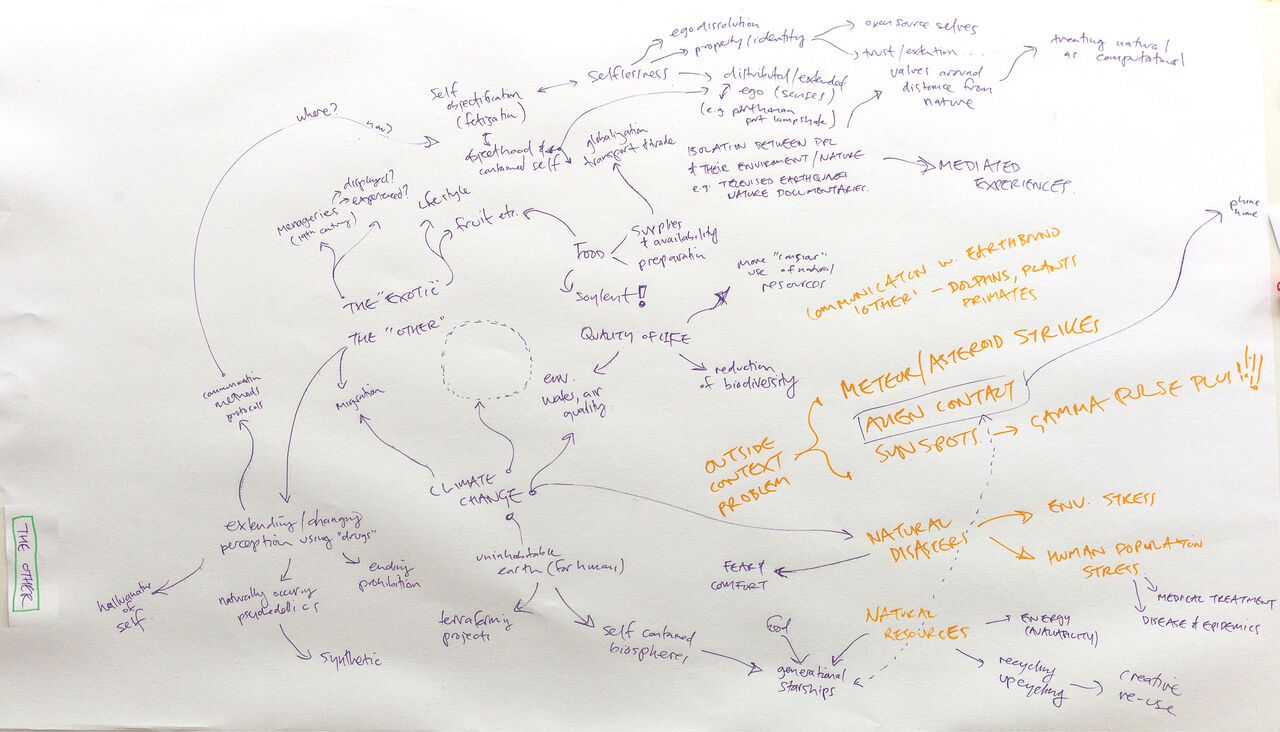 ego dissolution
property/identity
open source selves
trust/extention....
treating natural
as computational
where?
how?
Self
objectification
(fetization)
Selflessness
distributed/extended
ego (senses)
(e.g. part human
part lampshade)
values around
distance from
nature
objecthood &
contained self
globalization
transport & trade
ISOLATION BETWEEN PPL
& THEIR ENVIRMENT/NATURE
e.g. TELEVISED EARTHQUAKES
NATURE DOCUMENTARIES.
MEDIATED
EXPERIENCES.
displayed?
experienced?
menageries
(19th century)
lifestyle
fruit etc.
FOOD
Supplies
& availability
preparation
Soylent!
phone
home
THE "EXOTIC"
THE "OTHER"
more
use of natural
resources
QUALITY OF LIFE
COMMUNICATON W. EARTHBOUND
'OTHER' – DOLPHINS, PLANTS
PRIMATES
communication
methods
protocols
Migration
env.
water, air
quality
reduction
of biodiversity
METEOR/ASTEROID STRIKES
ALIEN CONTACT
SUNSPOTS → GAMMA PULSE PLUS!!!!
OUTSIDE
CONTEXT
PROBLEM
CLIMATE
CHANGE
THE OTHER
extending/changing
perception using "drugs"
ending
prohibition
naturally occuring
psychedelics
of
self
Synthetic
uninhabitable
earth (for humans)
terraforming
projects
self contained
biospheres
FEAR/
COMFORT
NATURAL
DISASTERS
ENV. STRESS
HUMAN POPULATION
STRESS
MEDICAL TREATMENT
DISEASE & EPIDEMICS
food
NATURAL
RESOURCES
generational
starships
ENERGY
(AVAILABILITY)
recycling
upcycling
creative
re-use